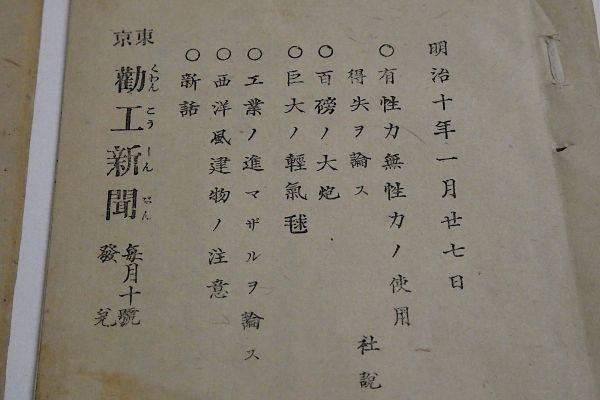 明治十年一月廿七日
○有性力無性力ノ使用
得失ヲ論ス
社說
○百磅ノ大炮
○巨大ノ輕氣毬
○工業ノ進マザルヲ論ス
○西洋風建物ノ注意
○新話
東京
勸工新聞
くわんこうしんぶん
每月十號
發兌